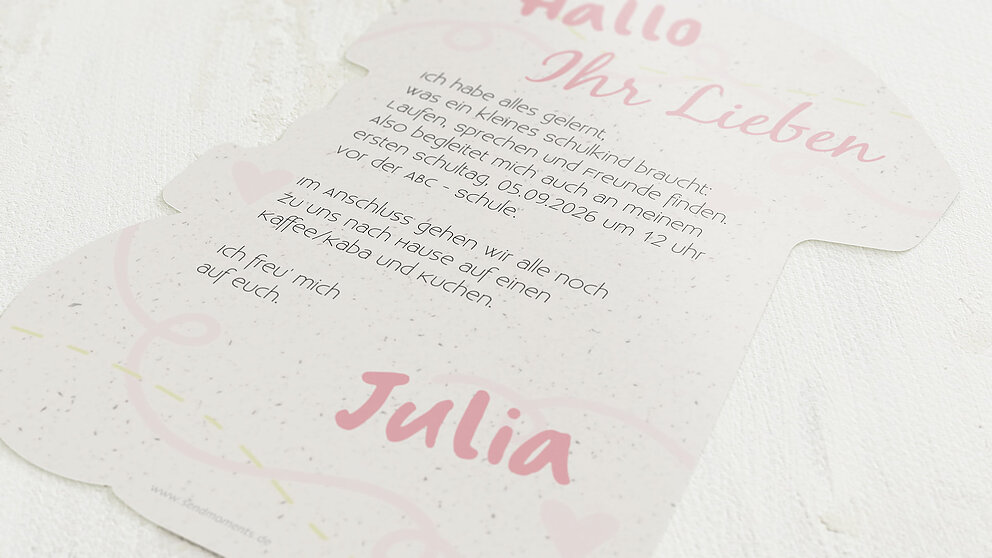 Hallo
Ihr Lieben
Ich habe alles gelernt,
was ein kleines Schulkind braucht:
Laufen, sprechen und Freunde finden.
Also begleitet mich auch an meinem
ersten Schultag, 05.09.2026 um 12 Uhr
vor der ABC - Schule.
Im Anschluss gehen wir alle noch
zu uns nach Hause auf einen
Kaffee/Kaba und Kuchen.
Ich freu' mich
auf euch.
Julia
www.sendmoments.de